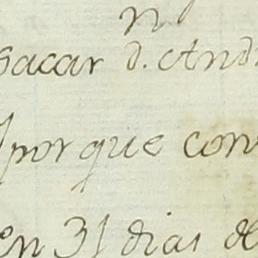 n
sacar d. And
porque con
en 31 dias de